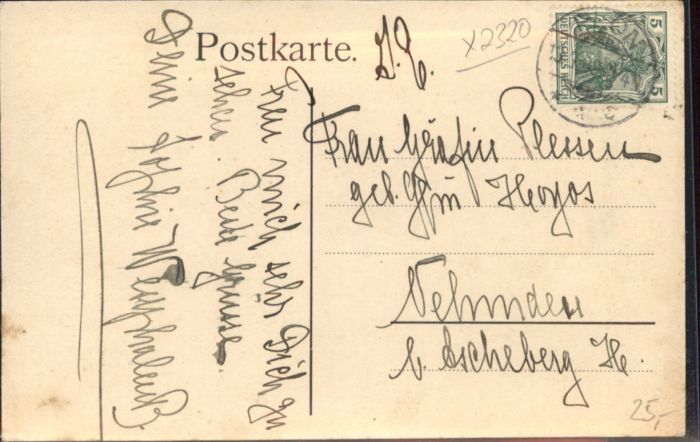 Postkarte.
I. H.
x2320
5 5
DEUTSCHES REICH
Frau Gräfin Plessen
geb. Gfin Hoyos
Nehmden
b. Ascheberg H.
25,-
Freu mich sehr Dich zu
sehen. Beste Grüsse
Deine Westphalen